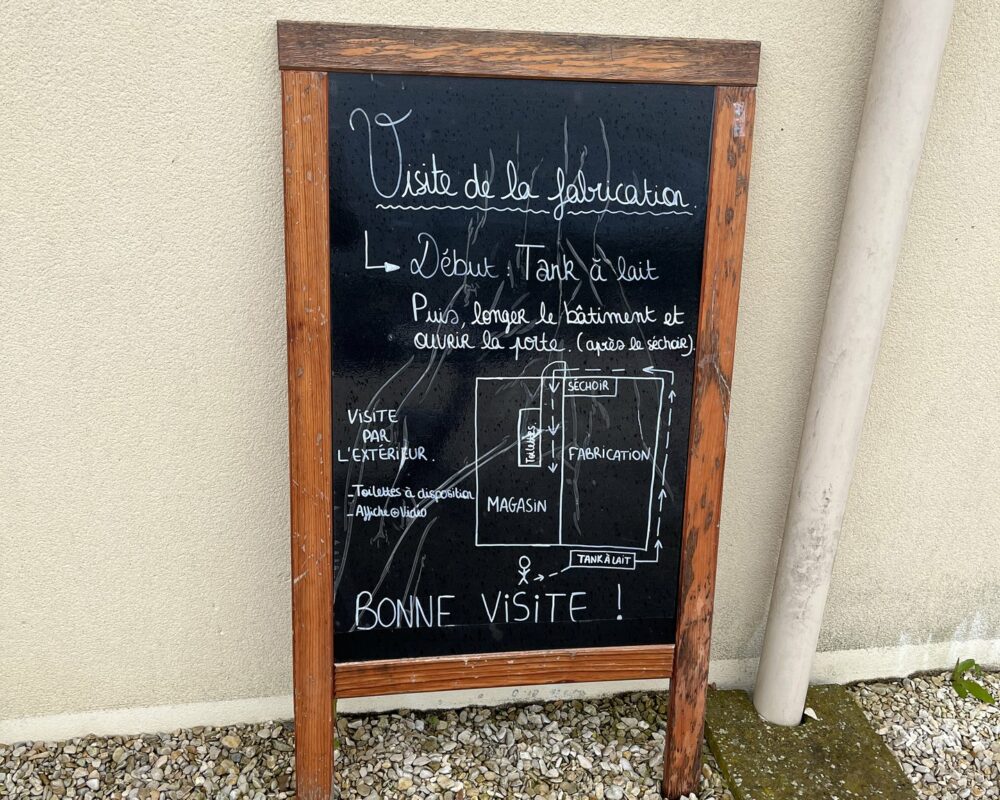 Visite de la fabrication.
Début : Tank à lait
Puis, longer le bâtiment et
ouvrir la porte. (après le séchoir).
SÉCHOIR
VISITE
PAR
L'EXTÉRIEUR.
Toilettes
FABRICATION
- Toilettes à disposition
- Affiche ⊕ Vidéo
MAGASIN
TANK À LAIT
BONNE VISITE !